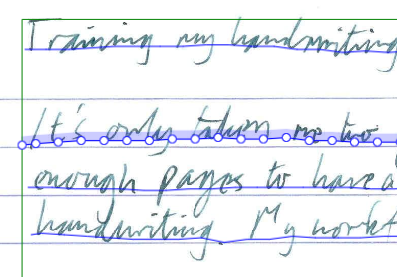 Training my handwriting
It's only taken me two
enough pages to have a
handwriting My